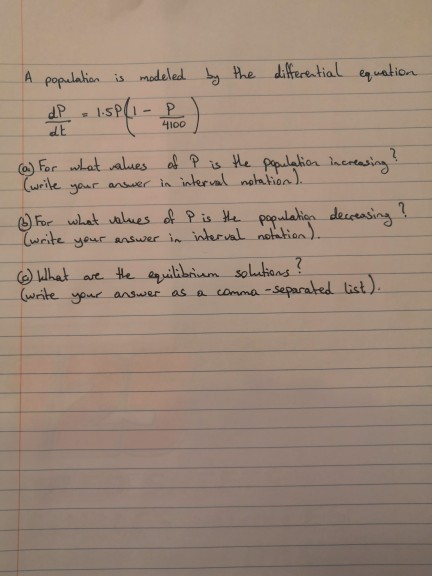 A population is modeled by the differential equation
dP/dt = 1.5P(1 - P/4100)
(a) For what values of P is the population increasing?
(write your answer in interval notation).
(b) For what values of P is the population decreasing?
(write your answer in interval notation).
(c) What are the equilibrium solutions?
(write your answer as a comma-separated list).